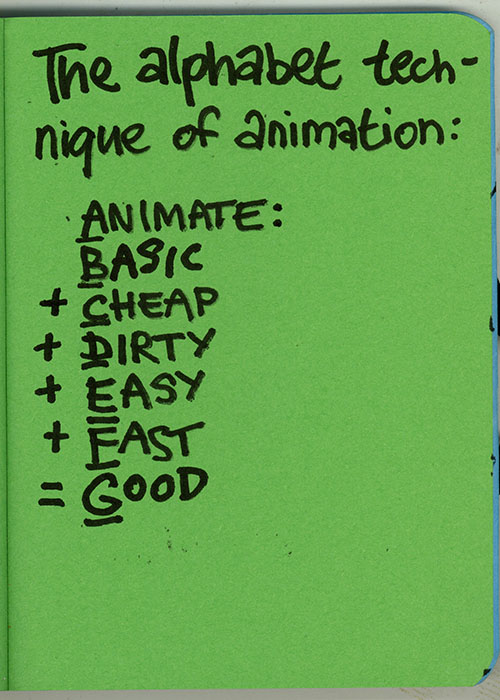 The alphabet tech-
nique of animation:
ANIMATE:
BASIC
+ CHEAP
+ DIRTY
+ EASY
+ FAST
= GOOD